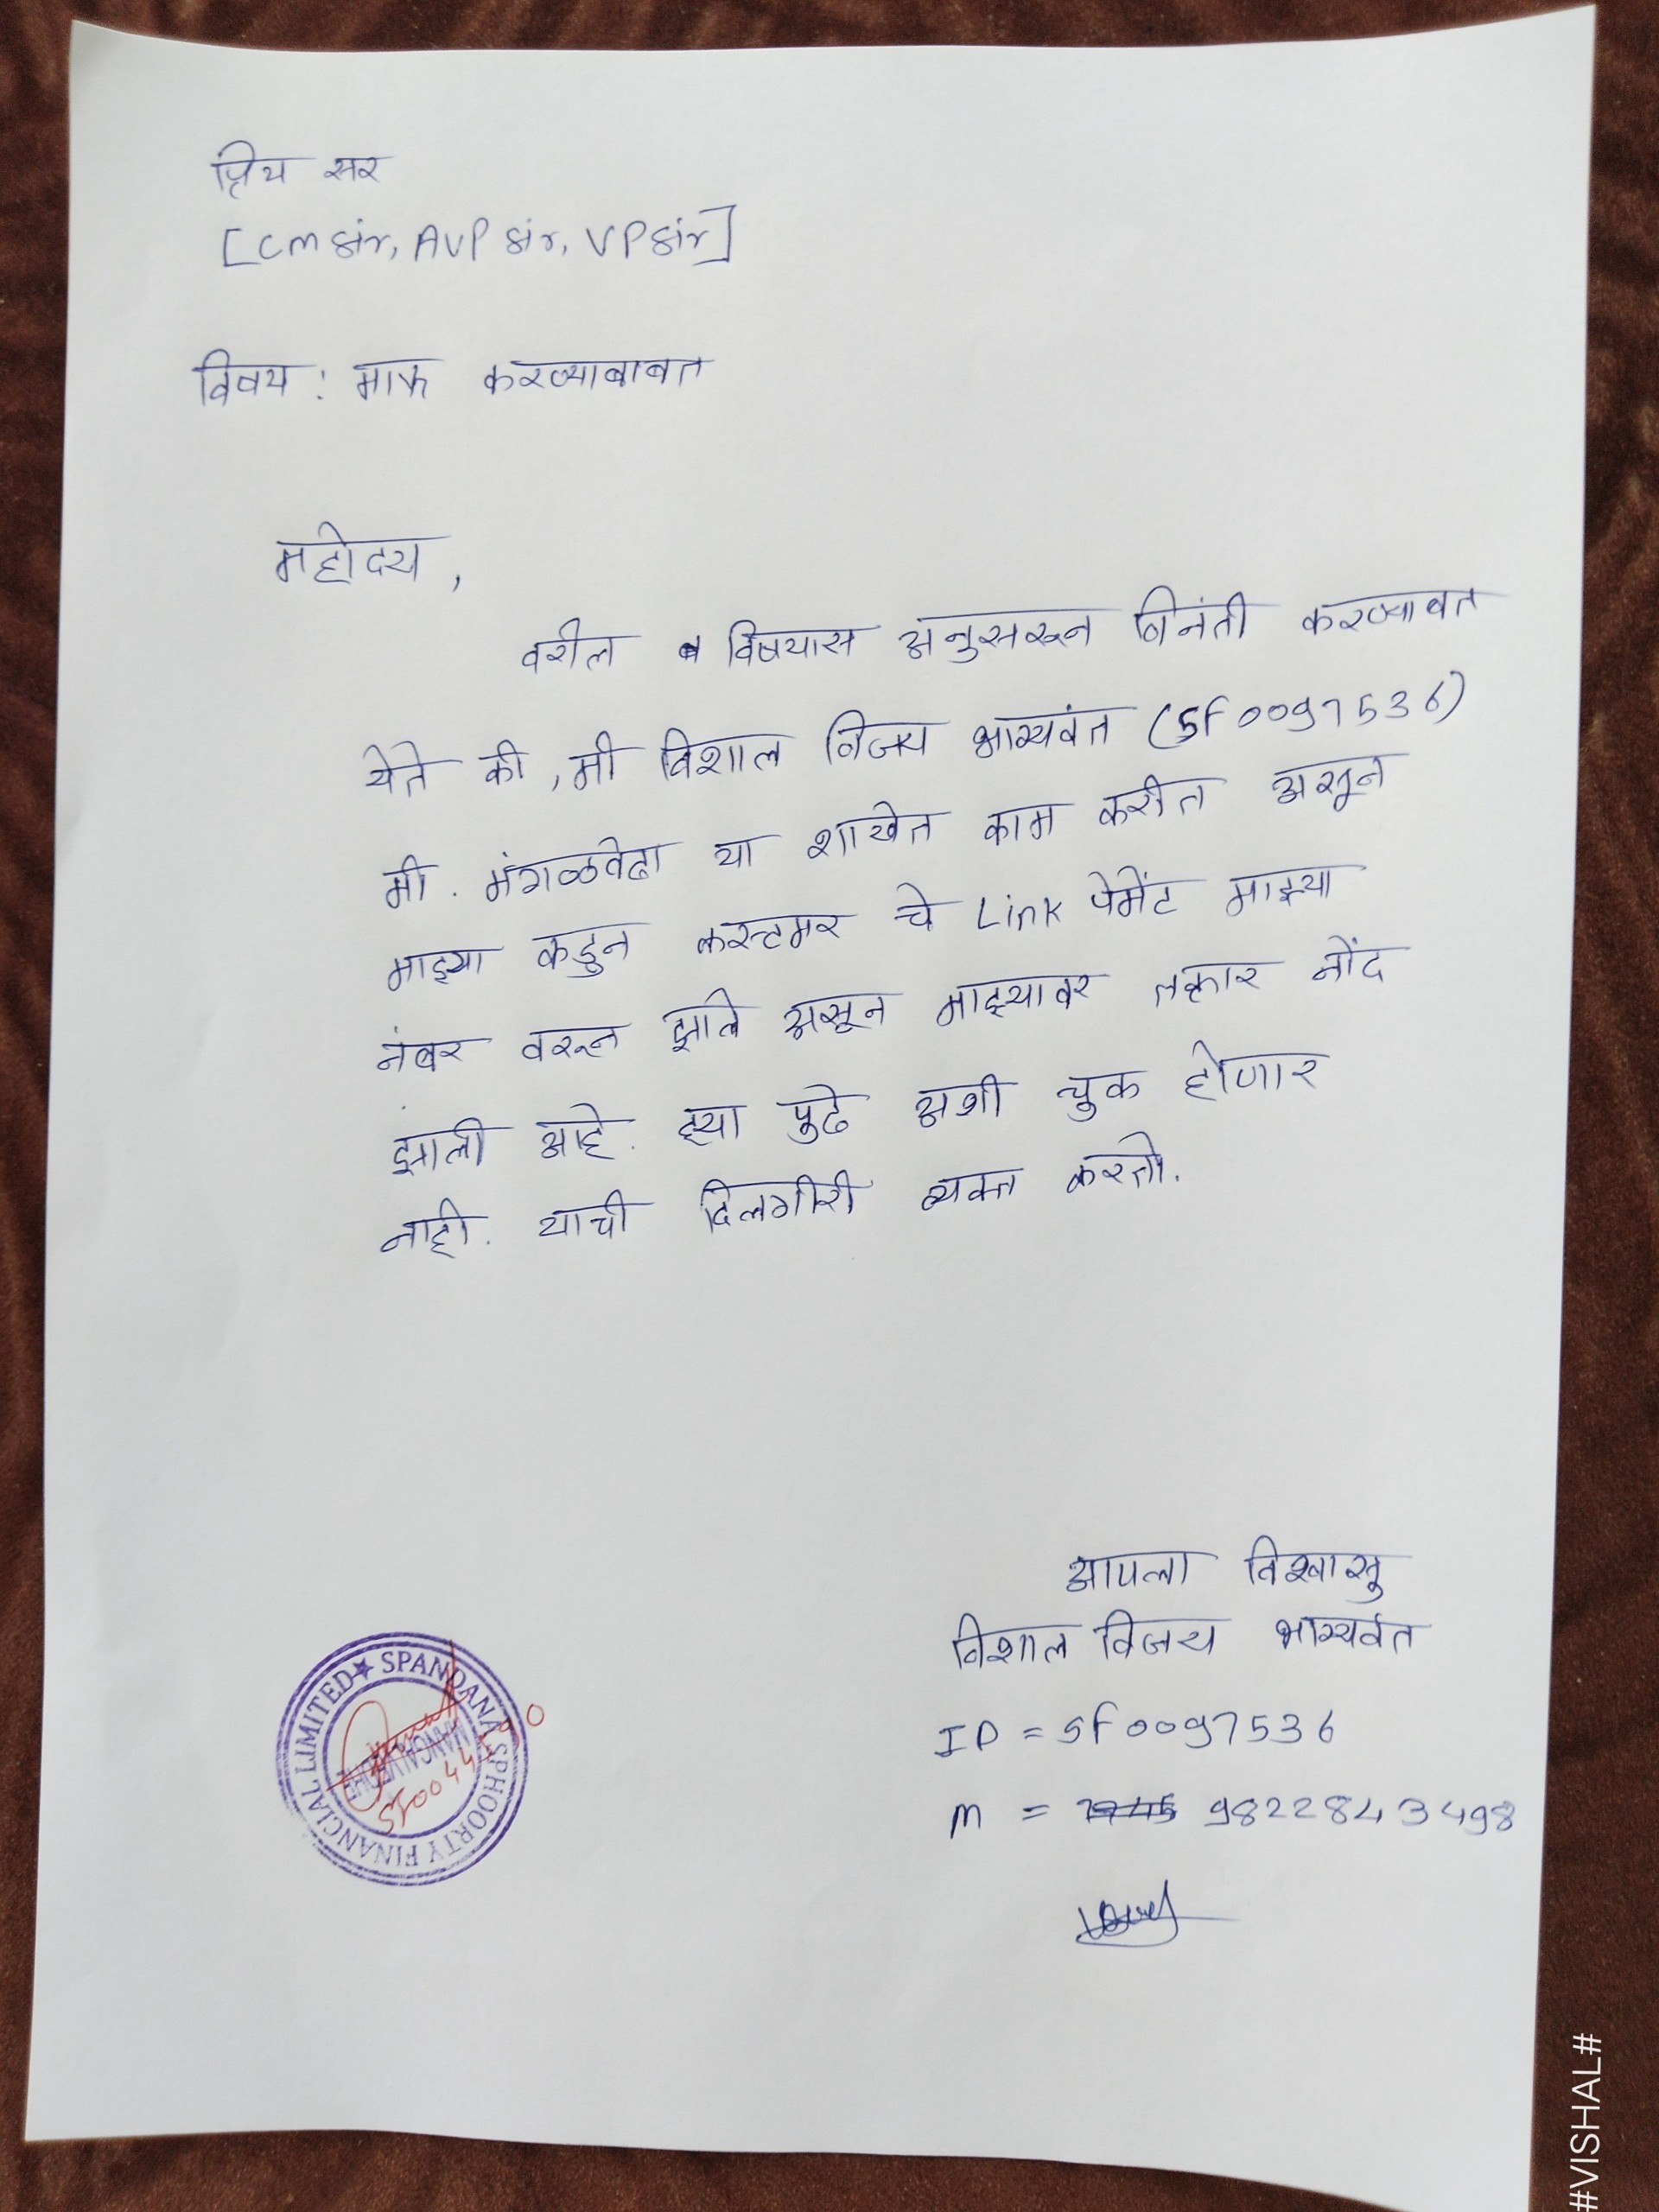 प्रिय सर
[cm sir, AVP sir, VP sir]
विषय : माफ करण्याबाबत
महोदय,
वरील विषयास अनुसरून विनंती करण्यात
येते की, मी विशाल विजय भाग्यवंत (SF0097536)
मी. मंगळवेढा या शाखेत काम करीत असून
माझ्या कडुन कस्टमर चे Link पेमेंट माझ्या
नंबर वरून झाले असून माझ्यावर तक्रार नोंद
झाली आहे. ह्या पुढे अशी चुक होणार
नाही. याची दिलगीरी व्यक्त करतो.
आपला विश्वासु
विशाल विजय भाग्यवंत
ID = SF0097536
m = 9822843498
SPANDANA SPHOORTY FINANCIAL LIMITED ★
MANGALVEDHE
#VISHAL#